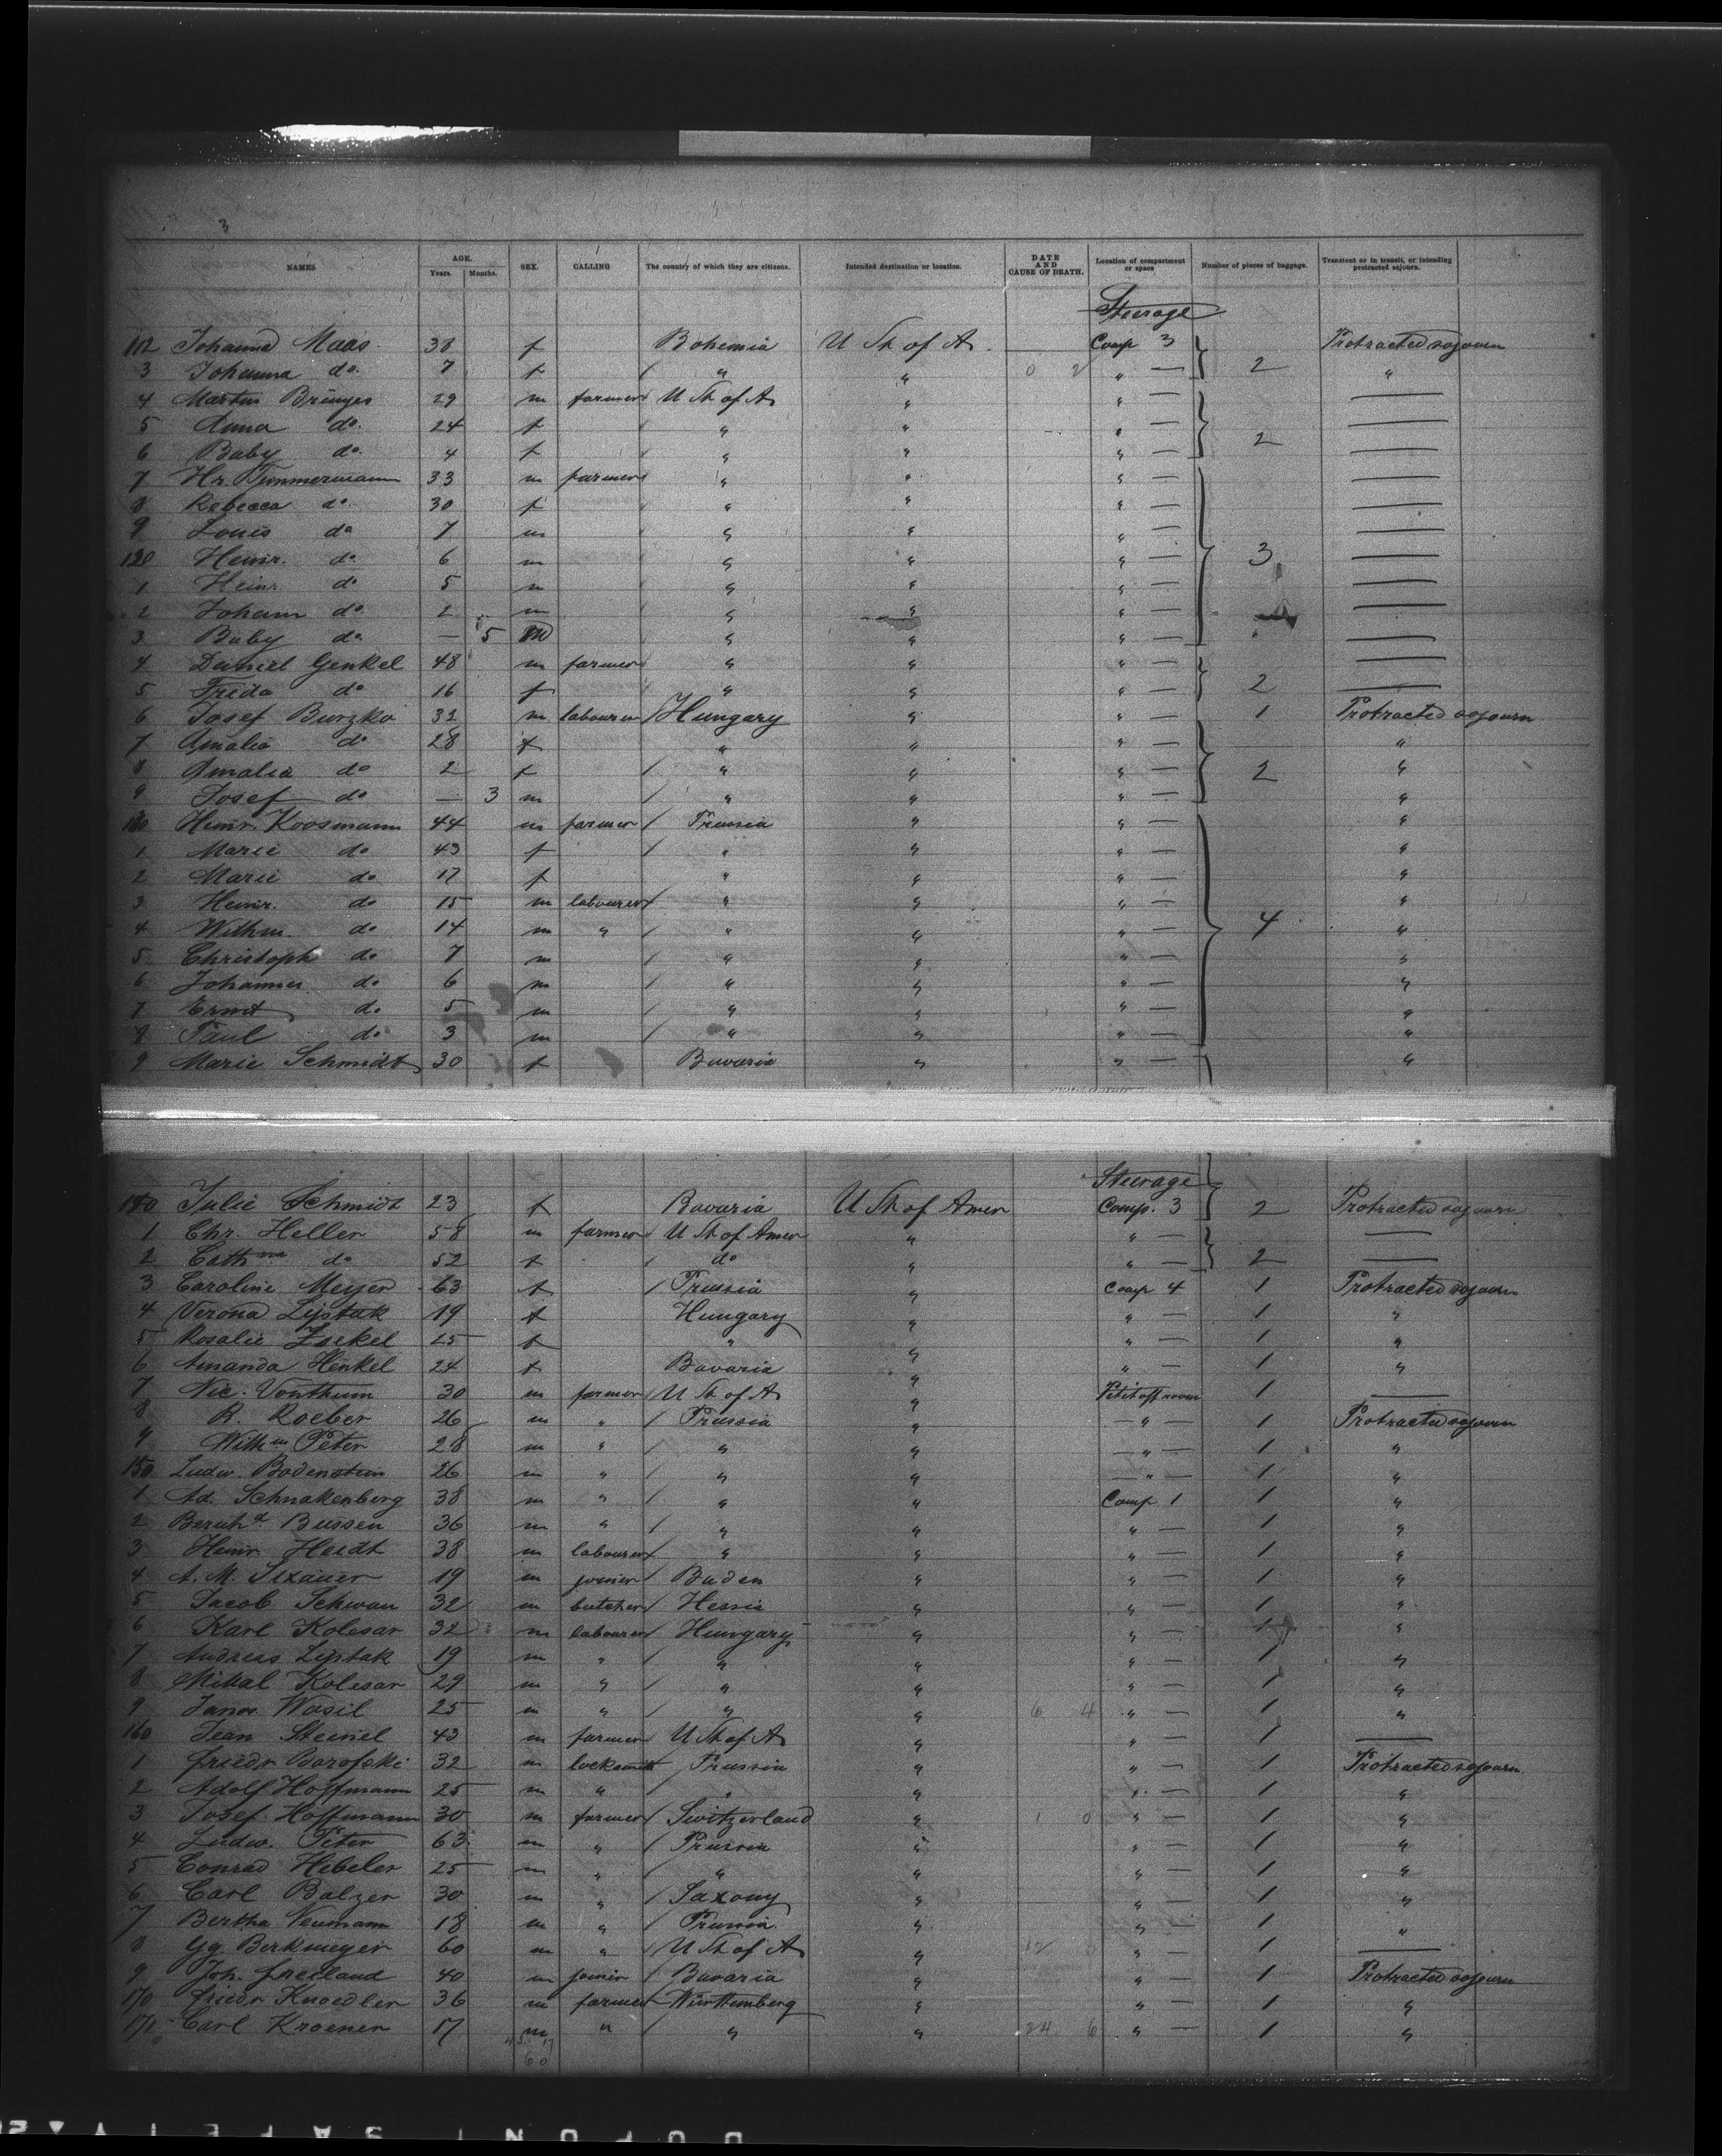 3
NAMES AGE. Years. Months. SEX. CALLING The country of which they are citizens. Intended destination or location. DATE AND CAUSE OF DEATH. Location of compartment or space Number of pieces of baggage. Transient or in transit, or intending protracted sojourn.
Steerage
112 Johanna Maas 38 f Bohemia U St of A. Comp 3 Protracted sojourn
3 Johanna do. 7 f " " " — 2 "
4 Martin Brünjes 29 m farmer U St of A " " — —
5 Anna do. 24 f " " " — —
6 Baby do. 4 f " " " — 2 —
7 Hr. Timmermann 33 m farmer " " " — —
8 Rebecca do. 30 f " " " — —
9 Louis do 7 m " " " — —
120 Heinr. do. 6 m " " " — 3 —
1 Heinr. do 5 m " " " — —
2 Johann do. 2 m " " " — —
3 Baby do. — 5 m " " " — —
4 Daniel Genkel 48 m farmer " " " — —
5 Frida do 16 f " " " — 2 —
6 Josef Burzko 32 m labourer Hungary " " — 1 Protracted sojourn
7 Amalia do 28 f " " " — "
8 Amalia do 2 f " " " — 2 "
9 Josef do — 3 m " " " — "
130 Heinr. Koosmann 44 m farmer Prussia " " — "
1 Marie do 43 f " " " — "
2 Marie do 17 f " " " — "
3 Heinr. do 15 m labourer " " " — "
4 Wilhm do 14 m " " " " — 4 "
5 Christoph do 7 m " " " — "
6 Johannes do. 6 m " " " — "
7 Ernst do. 5 m " " " — "
8 Paul do 3 m " " " — "
9 Marie Schmidt 30 f Bavaria " " — "
Steerage
140 Julie Schmidt 23 f Bavaria U St of Amer Comp. 3 2 Protracted sojourn
1 Chr. Heller 58 m farmer U St of Amer " " — —
2 Cath.na do 52 f do " " — 2 —
3 Caroline Meyer 63 f Prussia " Comp 4 1 Protracted sojourn
4 Verona Liptak 19 f Hungary " " — 1 "
5 Rosalie Zoekel 25 f " " " — 1 "
6 Amanda Henkel 24 f Bavaria " " — 1 "
7 Nic. Vonthum 30 m farmer U St of A " Petit off room 1 —
8 R. Roeber 26 m " Prussia " — " — 1 Protracted sojourn
9 Wilhm Peter 28 m " " " — " — 1 "
150 Ludw. Bodenstein 26 m " " " — " — 1 "
1 Ad. Schnakenberg 38 m " " " Comp 1 1 "
2 Bernhd. Bussen 36 m " " " " — 1 "
3 Heinr. Heidt 38 m labourer " " " — 1 "
4 A. M. Sixauer 19 m joiner Baden " " — 1 "
5 Jacob Schwan 32 m butcher Hessia " " — 1 "
6 Karl Kolesar 32 m labourer Hungary " " — 1 "
7 Andreas Liptak 19 m " " " " — 1 "
8 Mikal Kolesar 29 m " " " " — 1 "
9 Janos Wasil 25 m " " " 6 4 " — 1 "
160 Jean Steinel 43 m farmer U St of A " " — 1 —
1 Friedr Borofski 32 m locksmith Prussia " " — 1 Protracted sojourn
2 Adolf Hoffmann 25 m " " " " — 1 "
3 Josef Hoffmann 30 m farmer Switzerland " 1 0 " — 1 "
4 Ludw. Peter 63 m " Prussia " " — 1 "
5 Conrad Hebeler 25 m " " " " — 1 "
6 Carl Balzer 30 m " Saxony " " — 1 "
7 Bertha Neumann 18 m " Prussia " " — 1 "
8 Gg. Berkmeyer 60 m " U St of A " 12 " — 1 —
9 Joh. Freiland 40 m joiner Bavaria " " — 1 Protracted sojourn
170 Friedr Knoedler 36 m farmer Württemberg " " — 1 "
171 Carl Kroener 17 m " " " 24 6 " — 1 "
43 17
60
DUPONT SAFETY